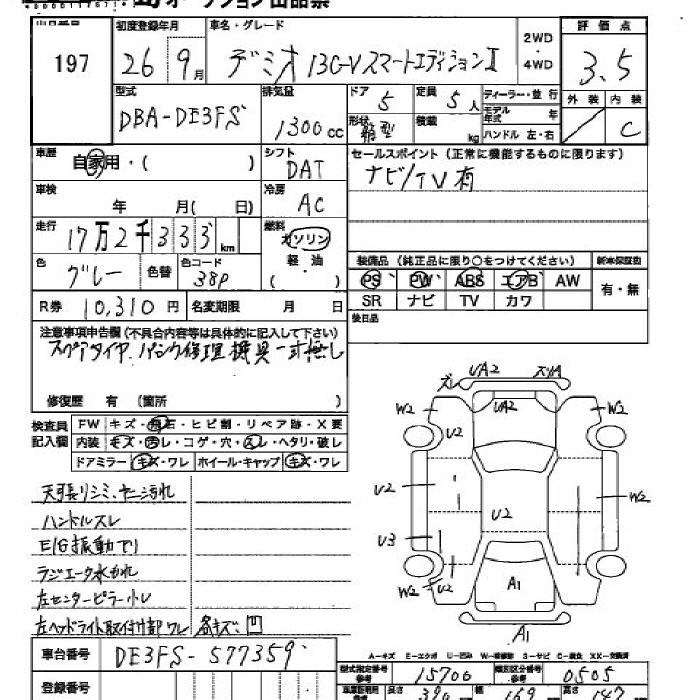 オークション出品票
出品番号 初度登録年月 車名・グレード 2WD・4WD 評価点
197 26 9月 デミオ 13C-V スマートエディションⅡ 3.5
型式 排気量 ドア 定員 ディーラー・並行 外装 内装
DBA-DE3FS 1300cc 5 5人 モデル年式 年
形状 箱型 積載 kg ハンドル 左・右 C
車歴 自家用・( ) シフト DAT セールスポイント(正常に機能するものに限ります)
ナビ/TV有
車検 年 月( 日) 冷房 AC
走行 17万2千333km 燃料 ガソリン 軽・油 ( )
装備品(純正品に限り○をつけてください) 新車保証書
色 グレー 色替 色コード 38P PS PW ABS エアB AW 有・無
R券 10,310円 名変期限 月 日 SR ナビ TV カワ
後日品
注意事項申告欄(不具合内容等は具体的に記入して下さい)
スペアタイヤ、パンク修理機具一式無し
修復歴 有 (箇所 )
検査員記入欄 FW キズ・飛石・ヒビ割・リペア跡・X要
内装 キズ・汚レ・コゲ・穴・スレ・ヘタリ・破レ
ドアミラー キズ・ワレ ホイール・キャップ キズ・ワレ
天張りシミ、ヤニ汚れ
ハンドルスレ
E/G振動アリ
ラジエータ水かれ
左センターピラー小レ
左ヘッドライト取付部ワレ 各キズ、凹
ズレ UA2 スリA
W2 UA2 W2
U2
U2 U2 W2
U3
W2 U2 A1 W2
A1
A-キズ E-エクボ U-凹み W-補修跡 S-サビ C-腐食 XX-交換済
車台番号 DE3FS-577359 型式指定番号 15706 類別区分番号 0505
登録番号 長さ 390 幅 169 149